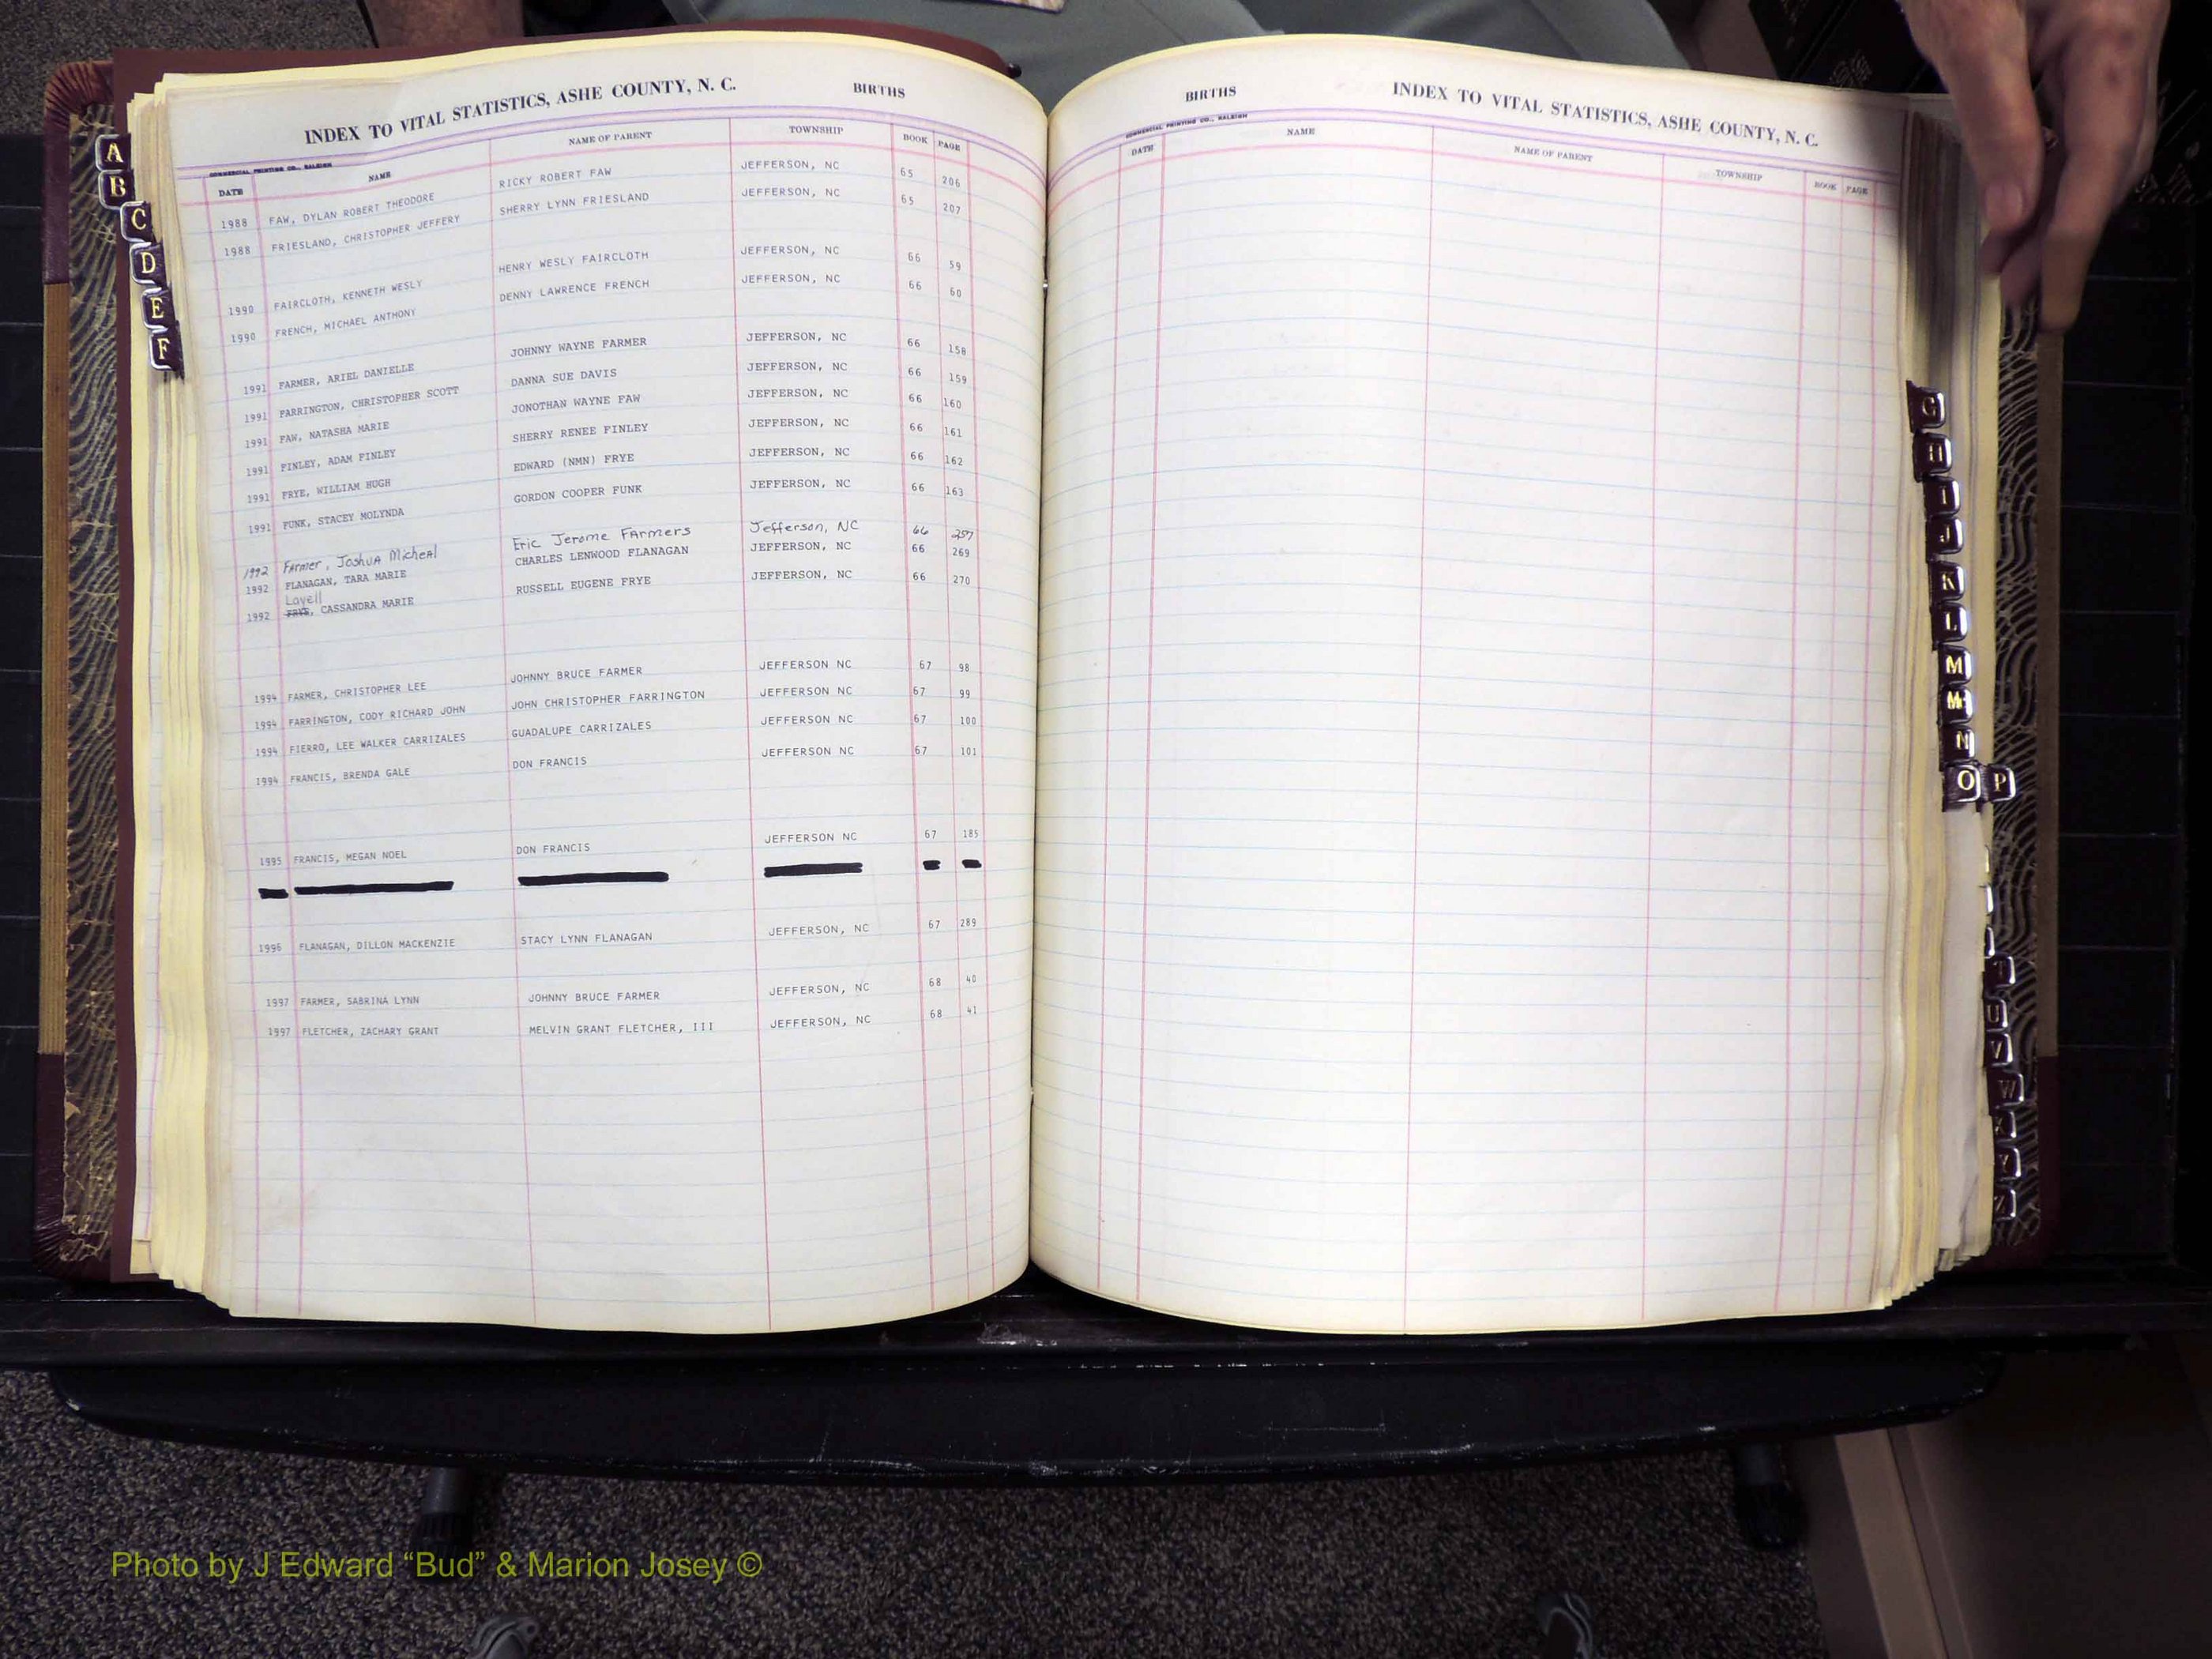 INDEX TO VITAL STATISTICS, ASHE COUNTY, N. C. BIRTHS
COMMERCIAL PRINTING CO., RALEIGH
DATE NAME NAME OF PARENT TOWNSHIP BOOK PAGE
1988 FAW, DYLAN ROBERT THEODORE RICKY ROBERT FAW JEFFERSON, NC 65 206
1988 FRIESLAND, CHRISTOPHER JEFFERY SHERRY LYNN FRIESLAND JEFFERSON, NC 65 207
1990 FAIRCLOTH, KENNETH WESLY HENRY WESLY FAIRCLOTH JEFFERSON, NC 66 59
1990 FRENCH, MICHAEL ANTHONY DENNY LAWRENCE FRENCH JEFFERSON, NC 66 60
1991 FARMER, ARIEL DANIELLE JOHNNY WAYNE FARMER JEFFERSON, NC 66 158
1991 FARRINGTON, CHRISTOPHER SCOTT DANNA SUE DAVIS JEFFERSON, NC 66 159
1991 FAW, NATASHA MARIE JONOTHAN WAYNE FAW JEFFERSON, NC 66 160
1991 FINLEY, ADAM FINLEY SHERRY RENEE FINLEY JEFFERSON, NC 66 161
1991 FRYE, WILLIAM HUGH EDWARD (NMN) FRYE JEFFERSON, NC 66 162
1991 FUNK, STACEY MOLYNDA GORDON COOPER FUNK JEFFERSON, NC 66 163
1992 Farmer, Joshua Micheal Eric Jerome Farmers Jefferson, NC 66 257
1992 FLANAGAN, TARA MARIE CHARLES LENWOOD FLANAGAN JEFFERSON, NC 66 269
Lavell
1992 FRYE, CASSANDRA MARIE RUSSELL EUGENE FRYE JEFFERSON, NC 66 270
1994 FARMER, CHRISTOPHER LEE JOHNNY BRUCE FARMER JEFFERSON NC 67 98
1994 FARRINGTON, CODY RICHARD JOHN JOHN CHRISTOPHER FARRINGTON JEFFERSON NC 67 99
1994 FIERRO, LEE WALKER CARRIZALES GUADALUPE CARRIZALES JEFFERSON NC 67 100
1994 FRANCIS, BRENDA GALE DON FRANCIS JEFFERSON NC 67 101
1995 FRANCIS, MEGAN NOEL DON FRANCIS JEFFERSON NC 67 185
1996 FLANAGAN, DILLON MACKENZIE STACY LYNN FLANAGAN JEFFERSON, NC 67 289
1997 FARMER, SABRINA LYNN JOHNNY BRUCE FARMER JEFFERSON, NC 68 40
1997 FLETCHER, ZACHARY GRANT MELVIN GRANT FLETCHER, III JEFFERSON, NC 68 41
A
B
C
D
E
F
BIRTHS INDEX TO VITAL STATISTICS, ASHE COUNTY, N. C.
COMMERCIAL PRINTING CO., RALEIGH
DATE NAME NAME OF PARENT TOWNSHIP BOOK PAGE
G
H
I
J
K
L
M
Mc
N
O P
T
U
V
W
X
Y
Z
Photo by J Edward “Bud” & Marion Josey ©